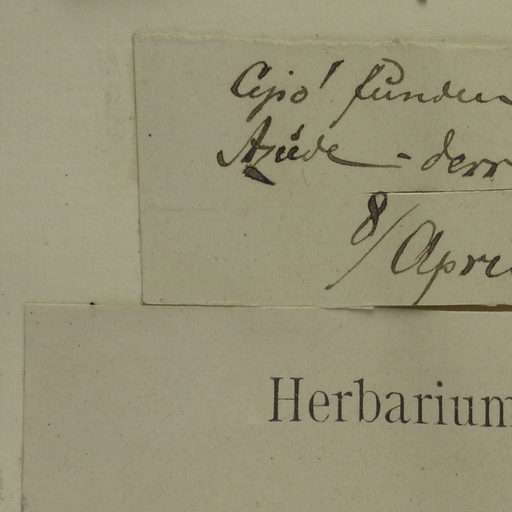 Cipó funden
Azúde - derr
8/ Apri
Herbarium